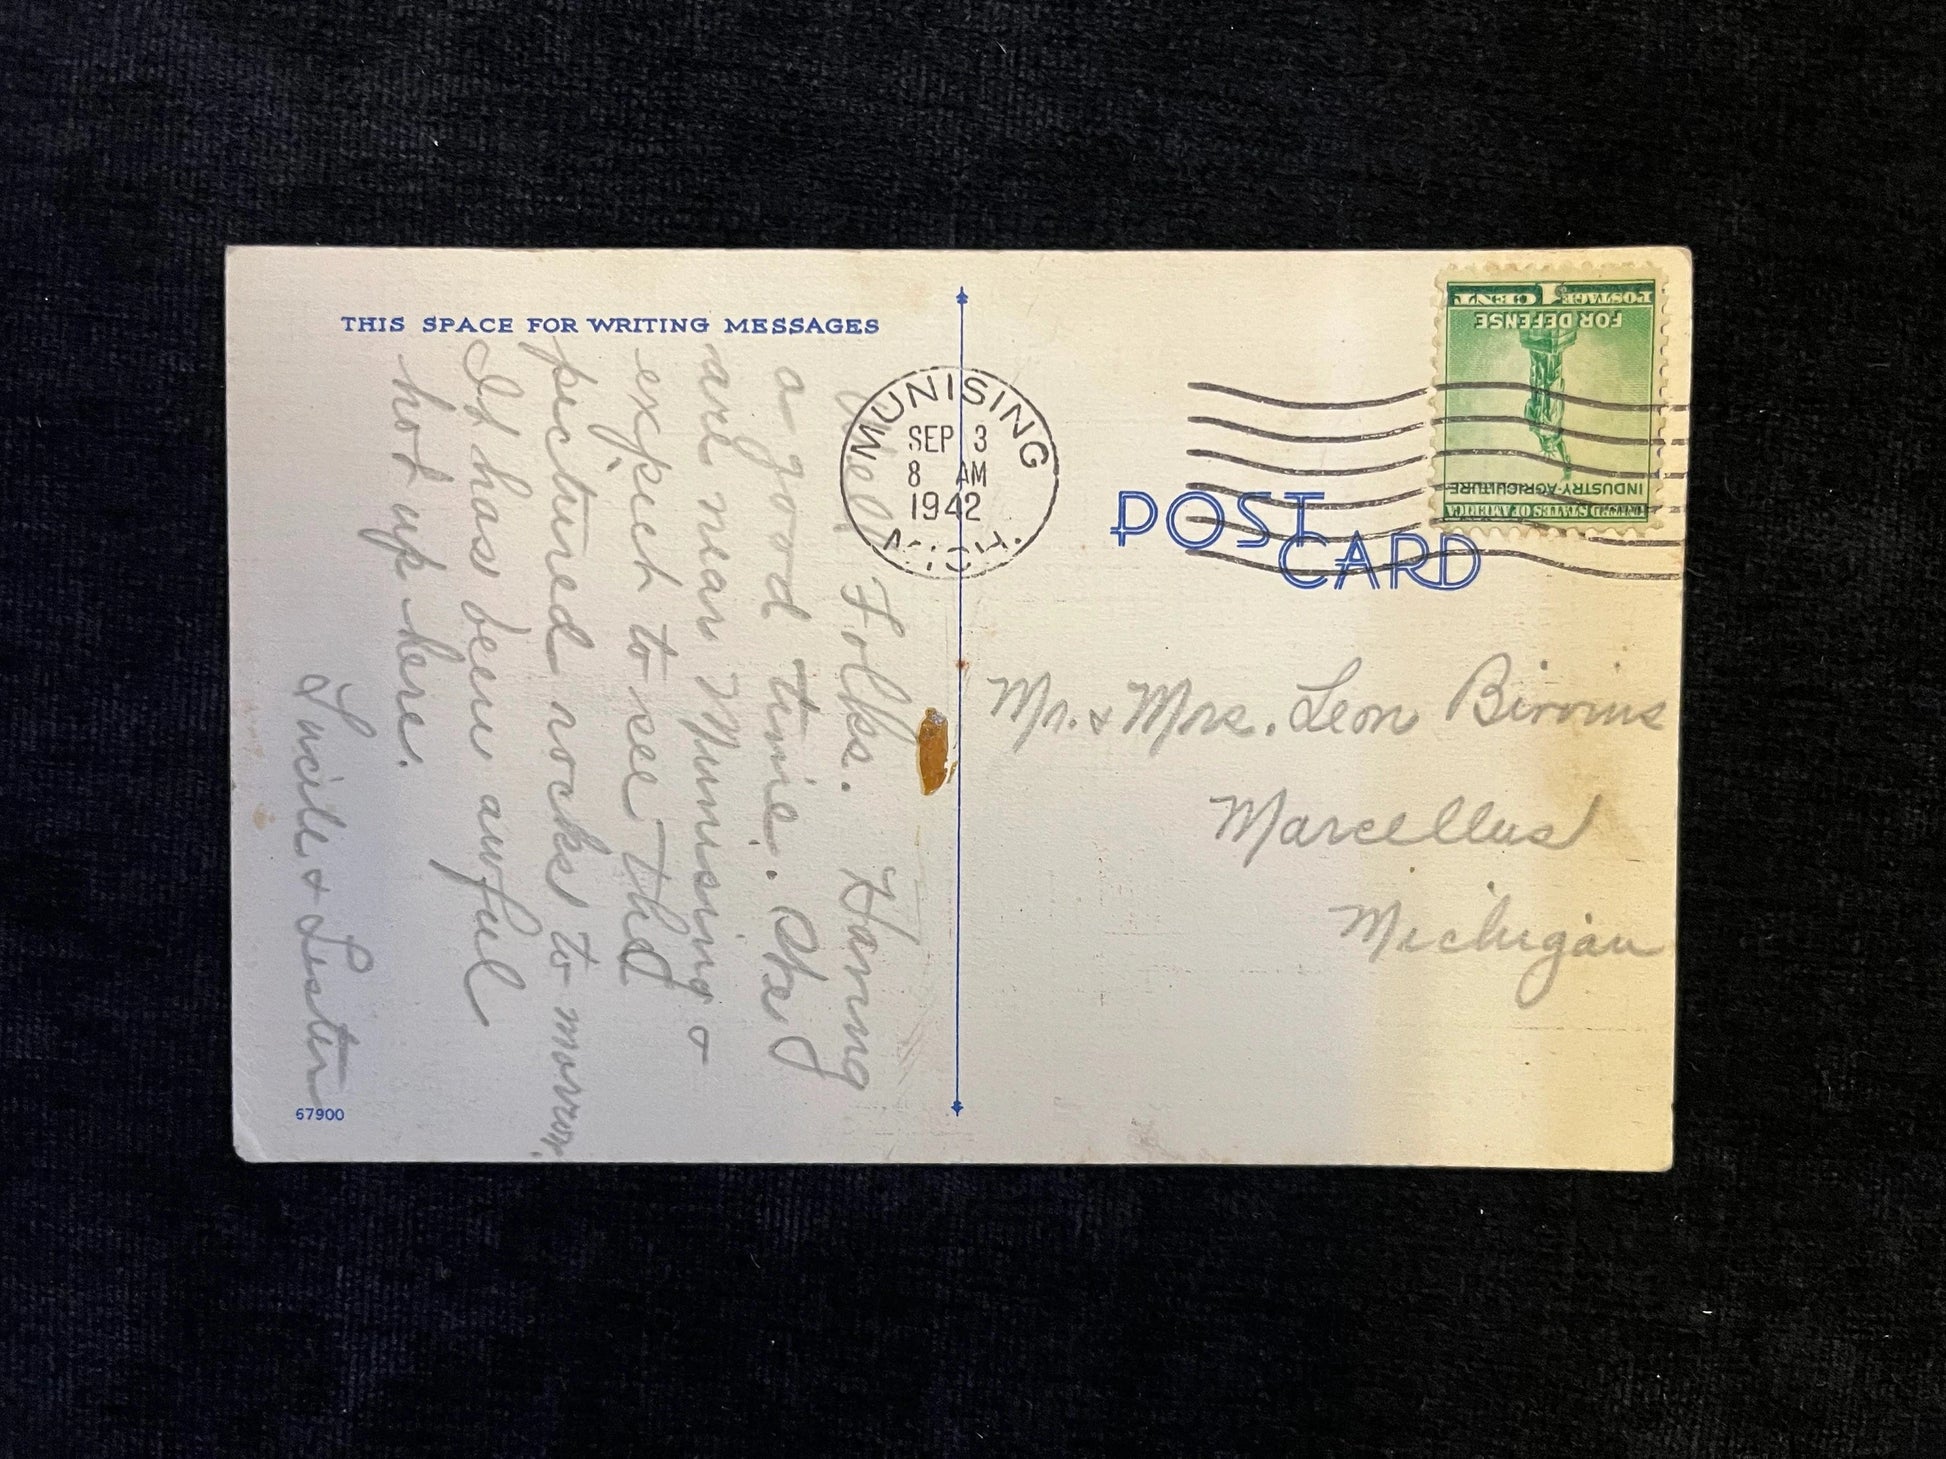 THIS SPACE FOR WRITING MESSAGES
Well Folks. Having
a good time. We
are near Munising &
expect to see the
pictured rocks to morrow.
It has been awful
hot up here.
Lucile & Lester
67900
MUNISING
SEP 3
8 AM
1942
MICH.
POST CARD
1 CENT POSTAGE
FOR DEFENSE
INDUSTRY-AGRICULTURE
UNITED STATES OF AMERICA
Mr. & Mrs. Leon
Marcellus
Michigan